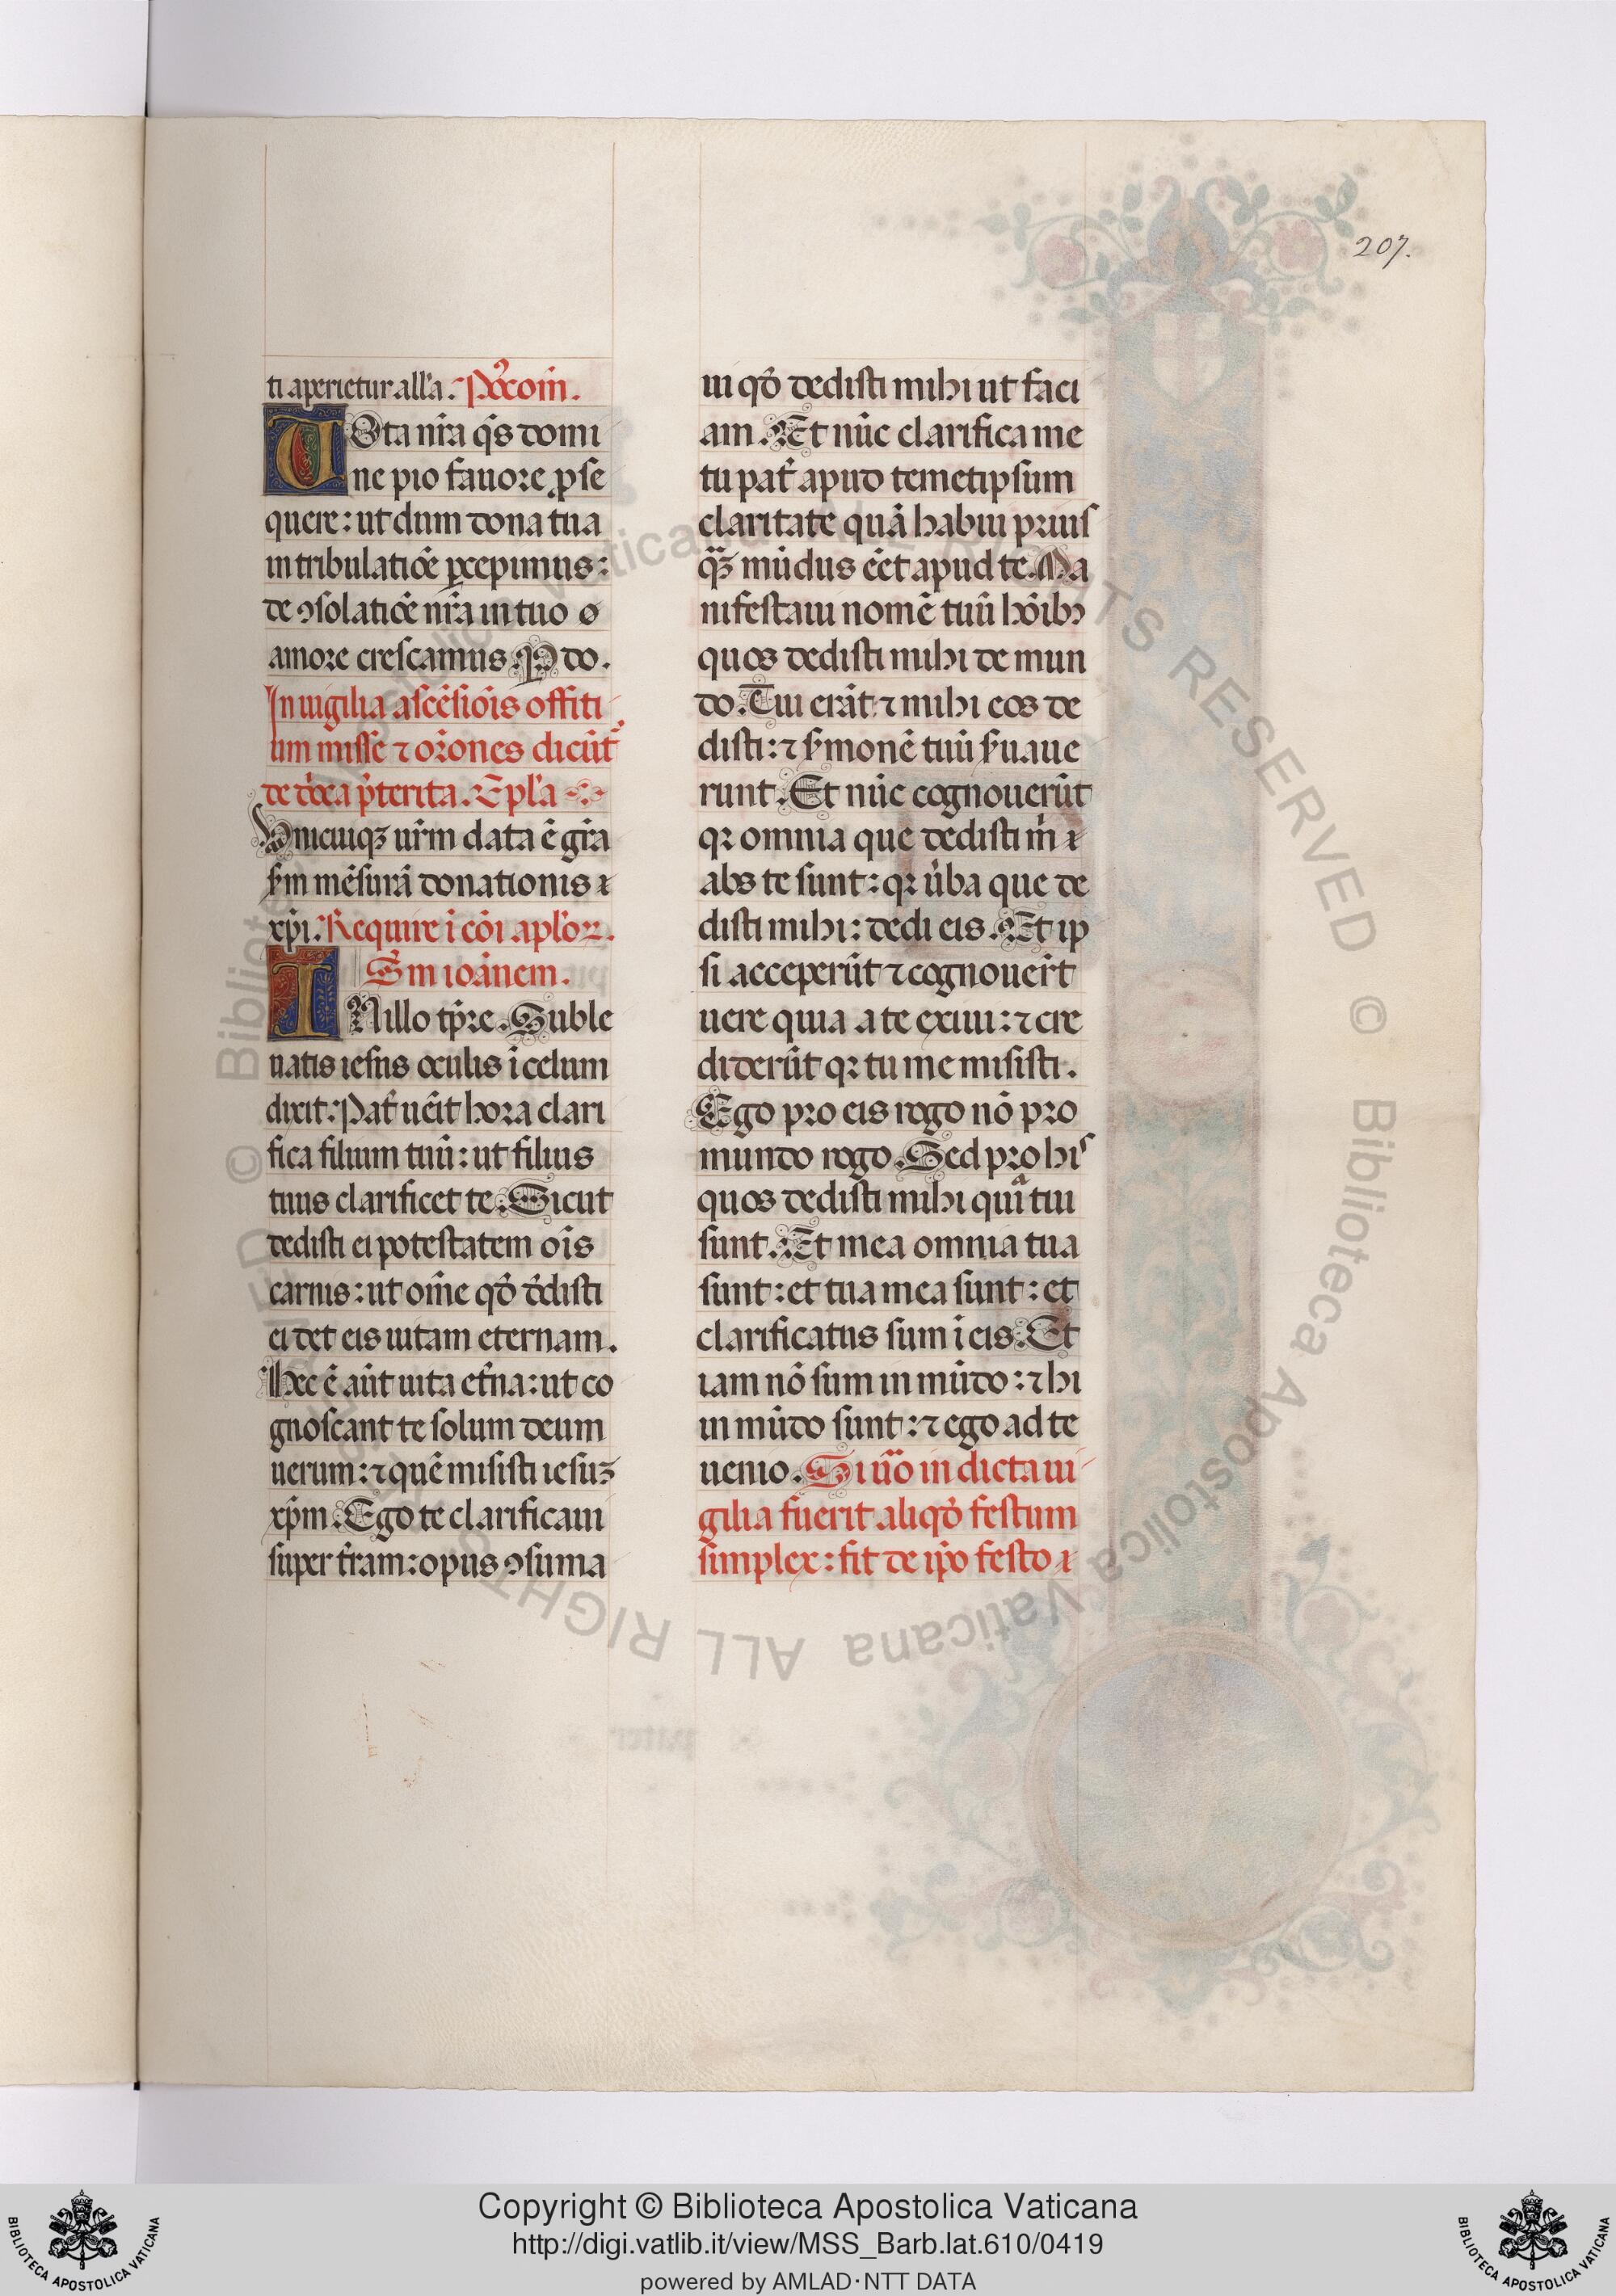 207.
ti aperietur all'a. Pꝰcom̄.
VOta nr̄a q̄s domi
ne pio fauore ꝓse
quere: ut dum dona tua
in tribulatiōe ꝑcepimus:
de ꝯsolatiōe nr̄a in tuo o
amore crescamus. P do.
In uigilia ascēsiōis offiti
um misse ⁊ or̄ones dicūt᷑
de dn̄ica p̄terita. Epl'a
Vnicuiqꝫ ur̄m data ē gr̄a
s̄m mēsurā donationis
xp̄i. Require ī cōi apl'oꝝ.
S̄m ioānem.
IN illo tp̄re. Suble
uatis iesus oculis ī celum
dixit: Pat̄ uēit hora clari
fica filium tuū: ut filius
tuus clarificet te. Sicut
dedisti ei potestatem oīs
carnis: ut om̄e qd̄ dedisti
ei det eis uitam eternam.
Hec ē aūt uita et̄na: ut co
gnoscant te solum deum
uerum: ⁊ quē misisti iesuꝫ
xp̄m. Ego te clarificaui
super t̄ram: opus ꝯsuma
ui qd̄ dedisti mihi ut faci
am. Et nūc clarifica me
tu pat̄ apud temetipsum
claritate quā habui prius
qꝫ̄ mūdus eēt apud te. Ma
nifestaui nomē tuū hōibꝰ
quos dedisti mihi de mun
do. Tui erāt ⁊ mihi eos de
disti: ⁊ s̄monē tuū s̄uaue
runt. Et nūc cognouerūt
qꝛ omnia que dedisti m̄
abs te sunt: qꝛ ūba que de
disti mihi: dedi eis. Et ip
si acceperūt ⁊ cognouer̄t
uere quia a te exiui: ⁊ cre
diderūt qꝛ tu me misisti.
Ego pro eis rogo nō pro
mundo rogo. Sed pro his
quos dedisti mihi quiᵃ tui
sunt. Et mea omnia tua
sunt: et tua mea sunt: et
clarificatus sum ī eis. Et
iam nō sum in mūdo: ⁊ hi
in mūdo sunt: ⁊ ego ad te
uenio. Si ūo in dicta ui
gilia fuerit aliqd̄ festum
simplex: fit de ip̄o festo
© Biblioteca Apostolica Vaticana ALL RIGHTS RESERVED © Biblioteca Apostolica Vaticana ALL RIGHTS RESERVED
Copyright © Biblioteca Apostolica Vaticana
http://digi.vatlib.it/view/MSS_Barb.lat.610/0419
powered by AMLAD·NTT DATA
BIBLIOTECA APOSTOLICA VATICANA
BIBLIOTECA APOSTOLICA VATICANA